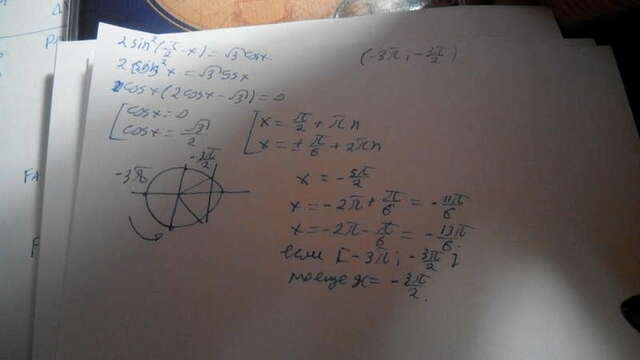 2sin²(π/2 - x) = √3 cosx.
(-3π; -3π/2)
2 cos²x = √3 cosx
cosx(2cosx - √3) = 0
[ cosx = 0
cosx = √3/2
[ x = π/2 + πn
x = ± π/6 + 2πn
-3π/2
-3π
x = -5π/2
x = -2π + π/6 = -11π/6
x = -2π - π/6 = -13π/6.
если [-3π; -3π/2]
то еще x = -3π/2.